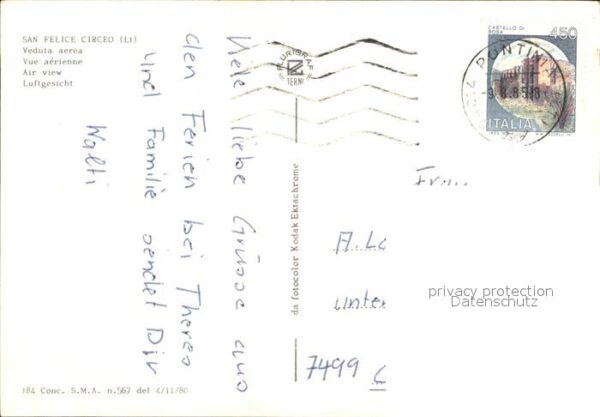 SAN FELICE CIRCEO (Lt)
Veduta aerea
Vue aérienne
Air view
Luftgesicht
PLURIGRAF
TERNI
CASTELLO DI
ROSA
450
ITALIA
PONTIN
Viele liebe Grüsse aus
den Ferien bei Thereo
und Familie sendet Dir
Walti
da fotocolor Kodak Ektachrome
Fr
A. Lo
unter
7499
privacy protection
Datenschutz
184 Conc. S.M.A. n.567 del 4/11/80